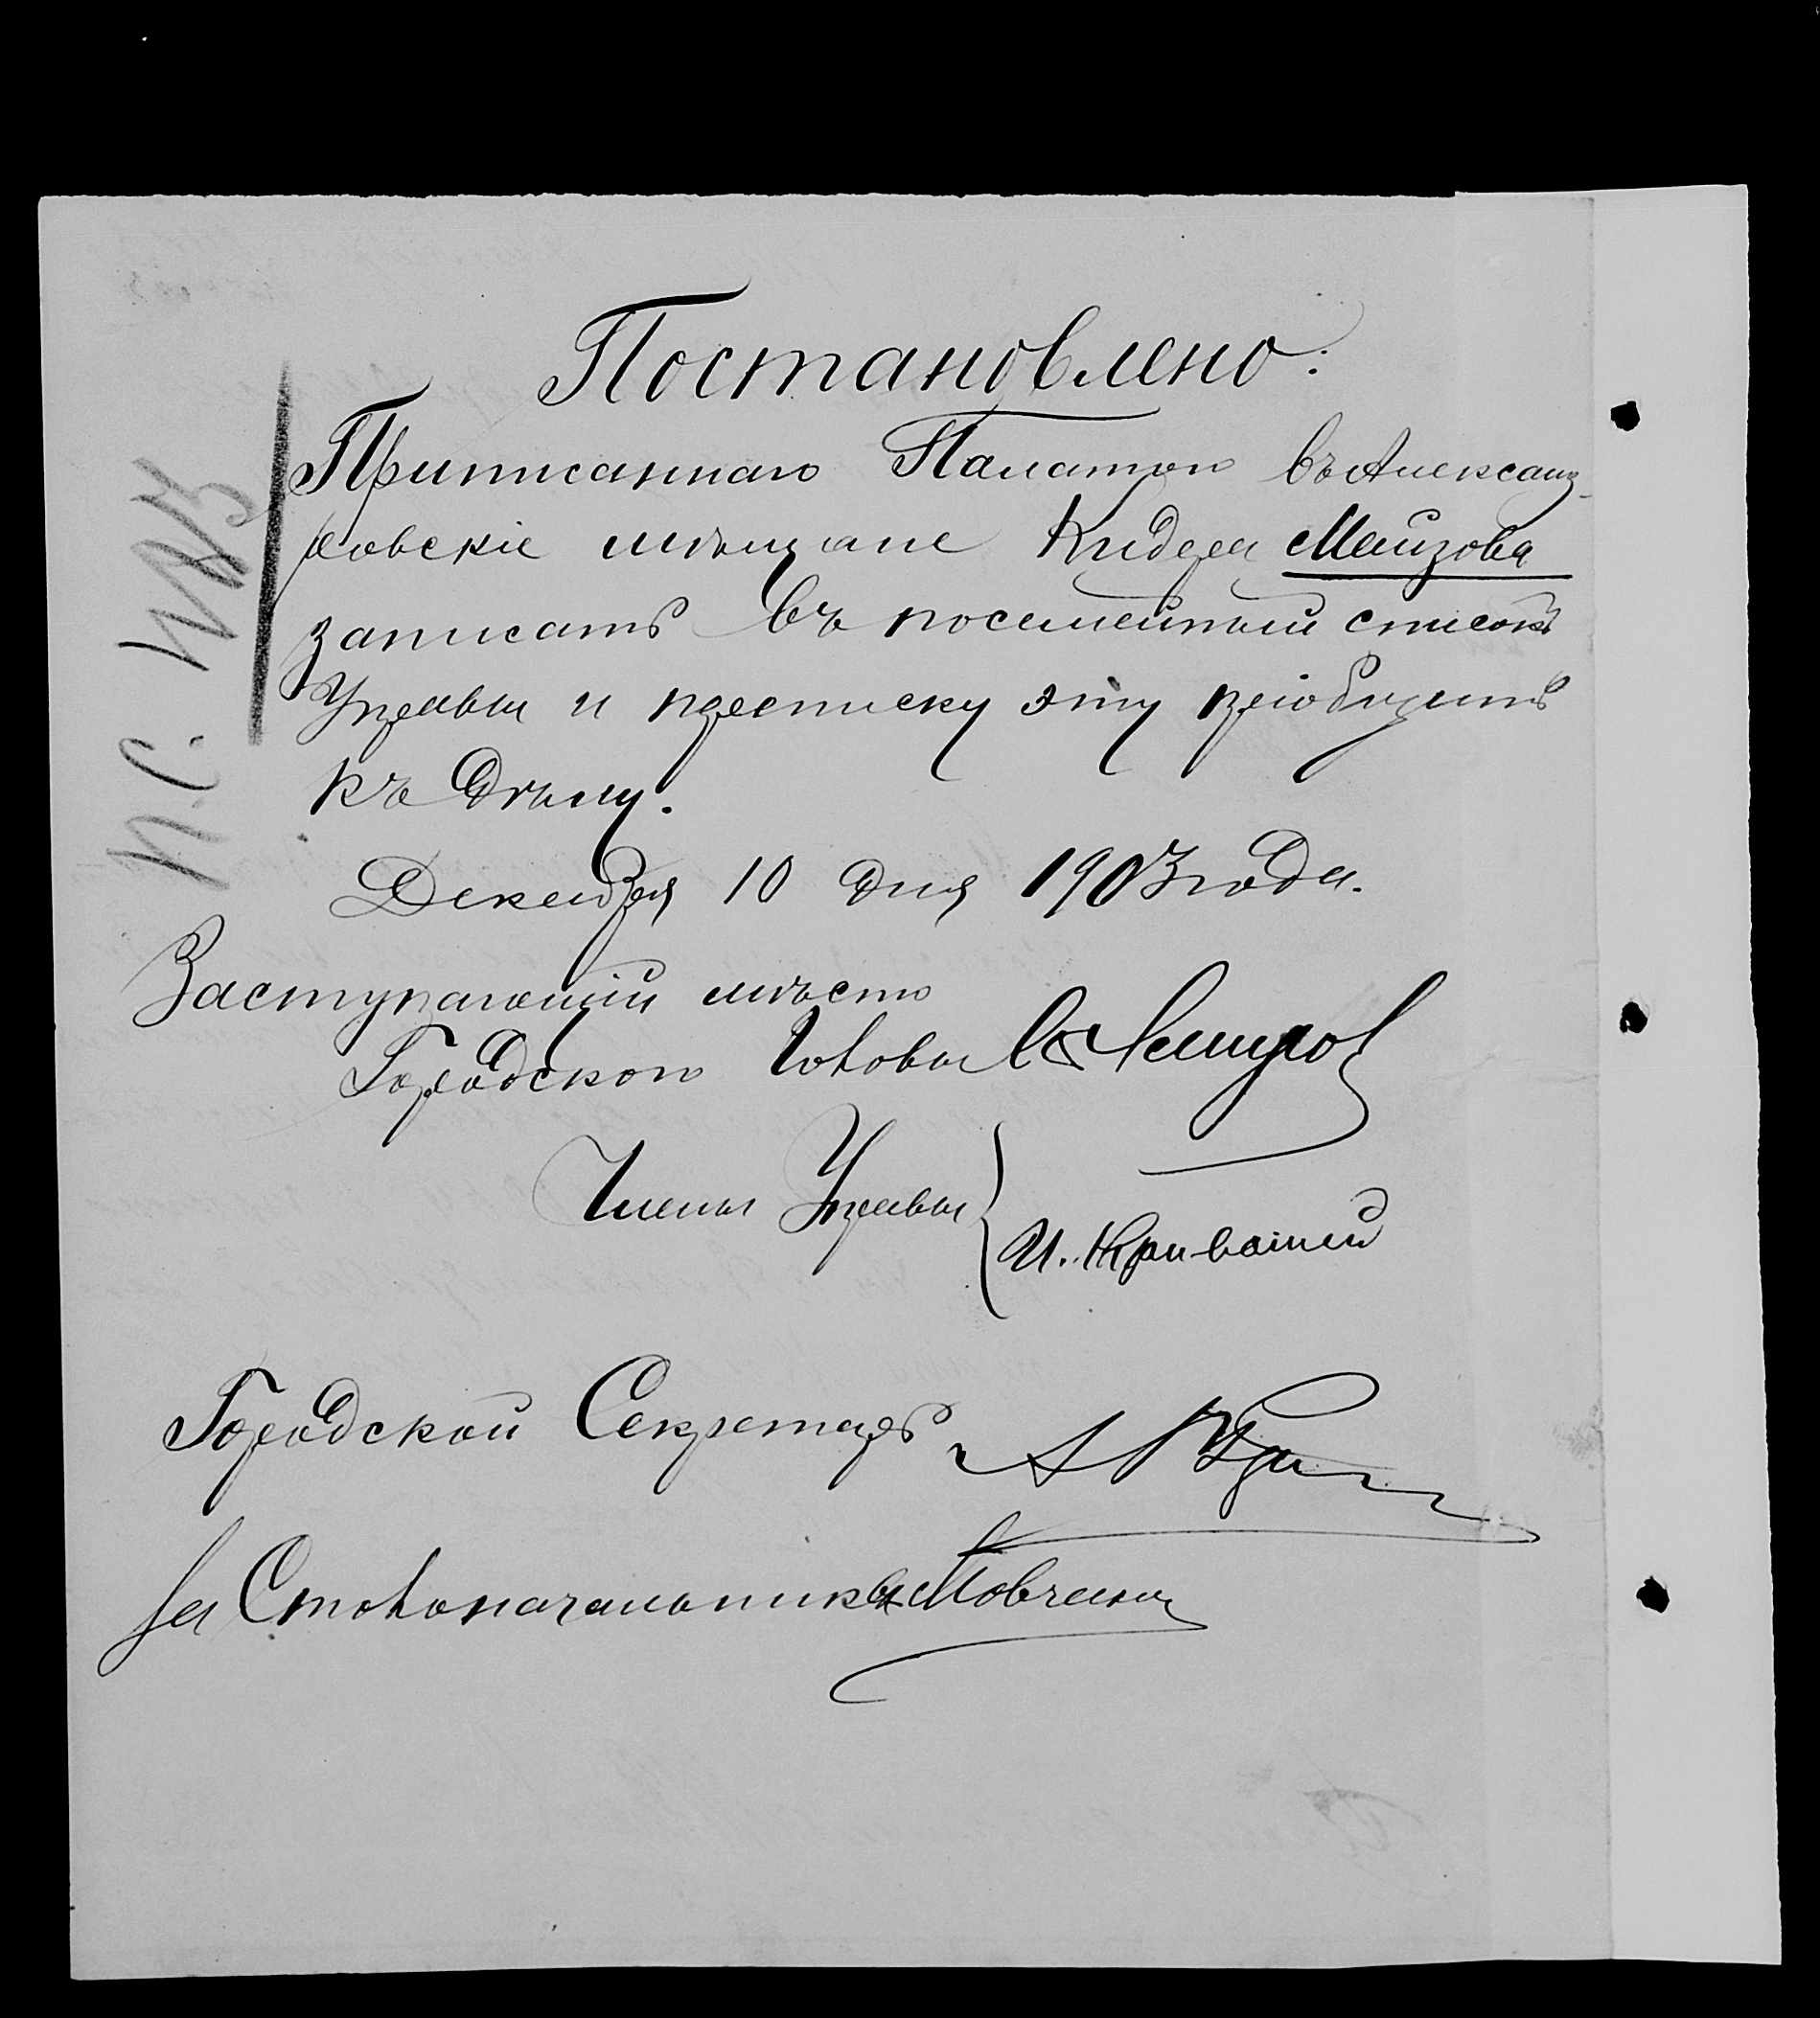 Постановлено:
Приписаннаго Палатою въ Александ-
ровскіе мѣщане Андрея Мамзова
записать въ посемейный списокъ
Управы и переписку эту пріобщить
къ дѣлу.
Декабря 10 дня 1903 года.
Заступающій мѣсто
Городского Головы
Члены Управы
И.
Городской Секретарь
За Столоначальника Мовчанъ
П.С.